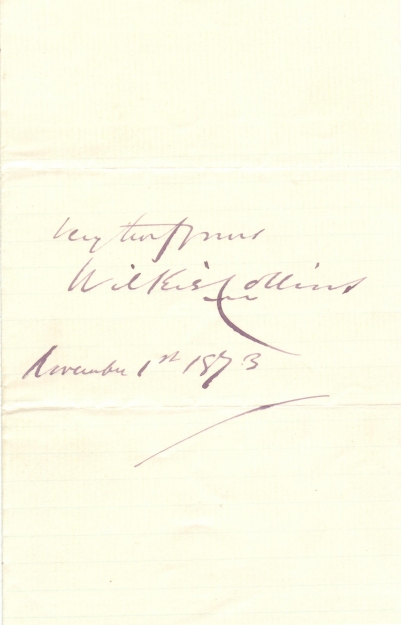 Very truly yours
Wilkie Collins
November 1st 1873